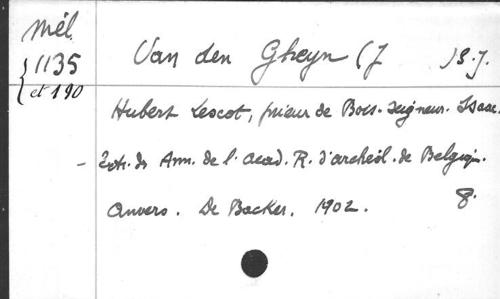 Mél.
1135
et 190
Van den Gheyn (J )S.J.
Hubert Lescot, prieur de Bois-Seigneur-Isaac.
Extr. des Ann. de l'acad. R. d'archéol. de Belgiq.
Anvers. De Backer. 1902. 8.